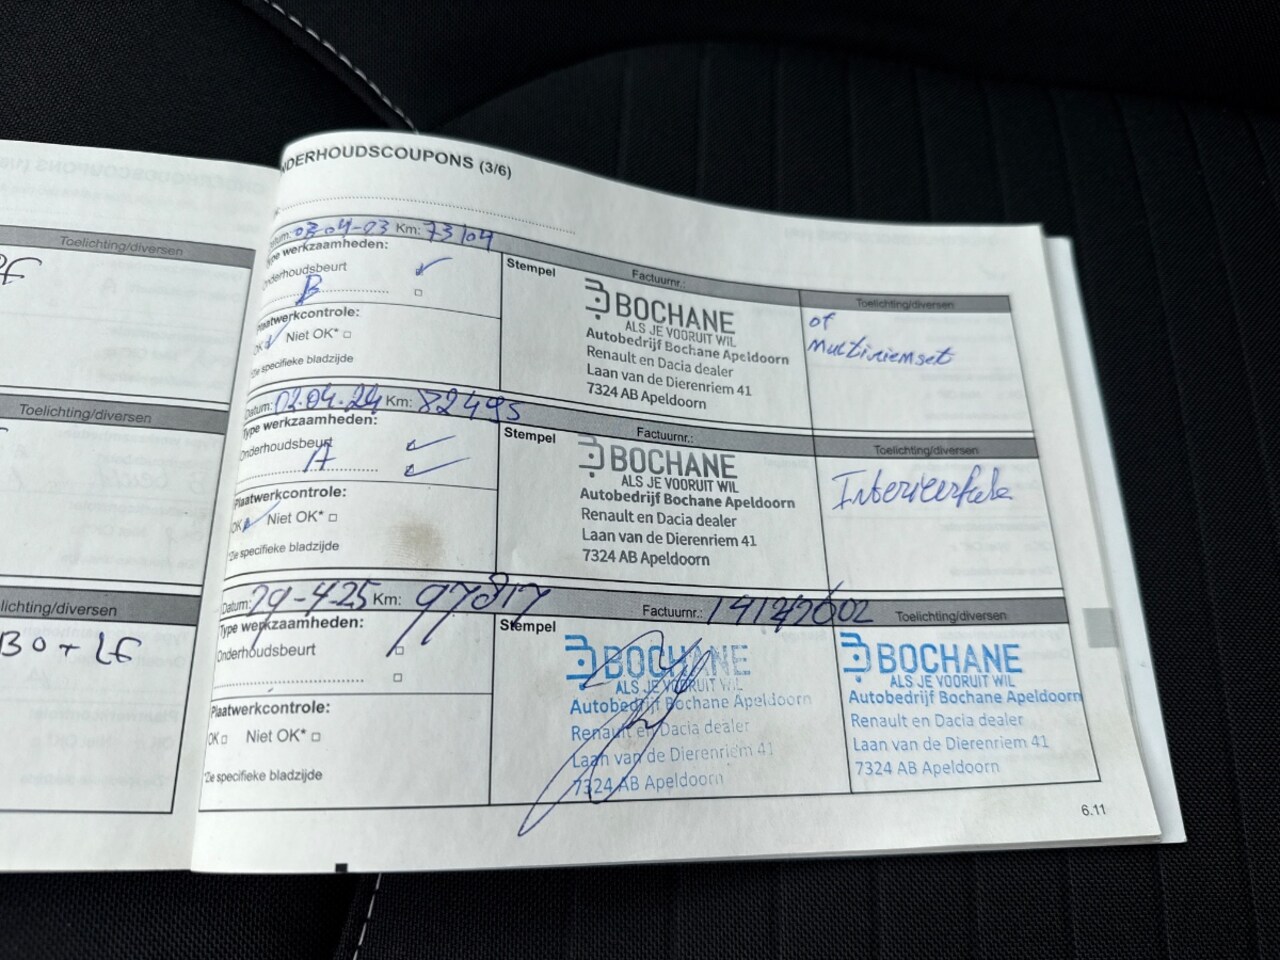 NDERHOUDSCOUPONS (3/6)
Toelichting/diversen
Toelichting/diversen
lichting/diversen
BO + LF
Datum: 03-04-23 Km: 73104
Factuurnr.:
Toelichting/diversen
Type werkzaamheden:
Onderhoudsbeurt ✓
B
Plaatwerkcontrole:
OK Niet OK*
*Zie specifieke bladzijde
Stempel
BOCHANE
ALS JE VOORUIT WIL
Autobedrijf Bochane Apeldoorn
Renault en Dacia dealer
Laan van de Dierenriem 41
7324 AB Apeldoorn
of
multiriemset
Datum: 02.04.24 Km: 82495
Factuurnr.:
Toelichting/diversen
Type werkzaamheden:
Onderhoudsbeurt ✓
A ✓
Plaatwerkcontrole:
OK Niet OK*
*Zie specifieke bladzijde
Stempel
BOCHANE
ALS JE VOORUIT WIL
Autobedrijf Bochane Apeldoorn
Renault en Dacia dealer
Laan van de Dierenriem 41
7324 AB Apeldoorn
Datum: 29-4-25 Km: 97817
Factuurnr.: 14147602
Toelichting/diversen
Type werkzaamheden:
Onderhoudsbeurt
Plaatwerkcontrole:
OK Niet OK*
*Zie specifieke bladzijde
Stempel
BOCHANE
ALS JE VOORUIT WIL
Autobedrijf Bochane Apeldoorn
Renault en Dacia dealer
Laan van de Dierenriem 41
7324 AB Apeldoorn
BOCHANE
ALS JE VOORUIT WIL
Autobedrijf Bochane Apeldoorn
Renault en Dacia dealer
Laan van de Dierenriem 41
7324 AB Apeldoorn
6.11